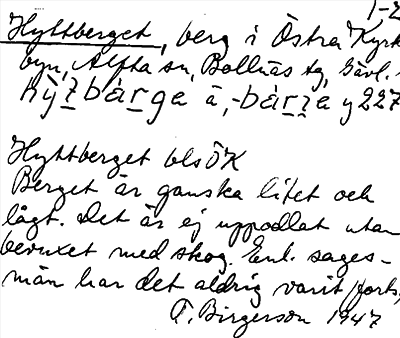 1-2
Hyttberget, berg i Östra Kyrk
byn, Alfta sn, Bollnäs tg, Gävl.
hẏtbárga ä, -bárga y 227
Hyttberget bls ÖK
Berget är ganska litet och
lågt. Det är ej uppodlat utan
bevuxet med skog. Enl. sages-
man har det aldrig varit forts,
F. Birgerson 1947